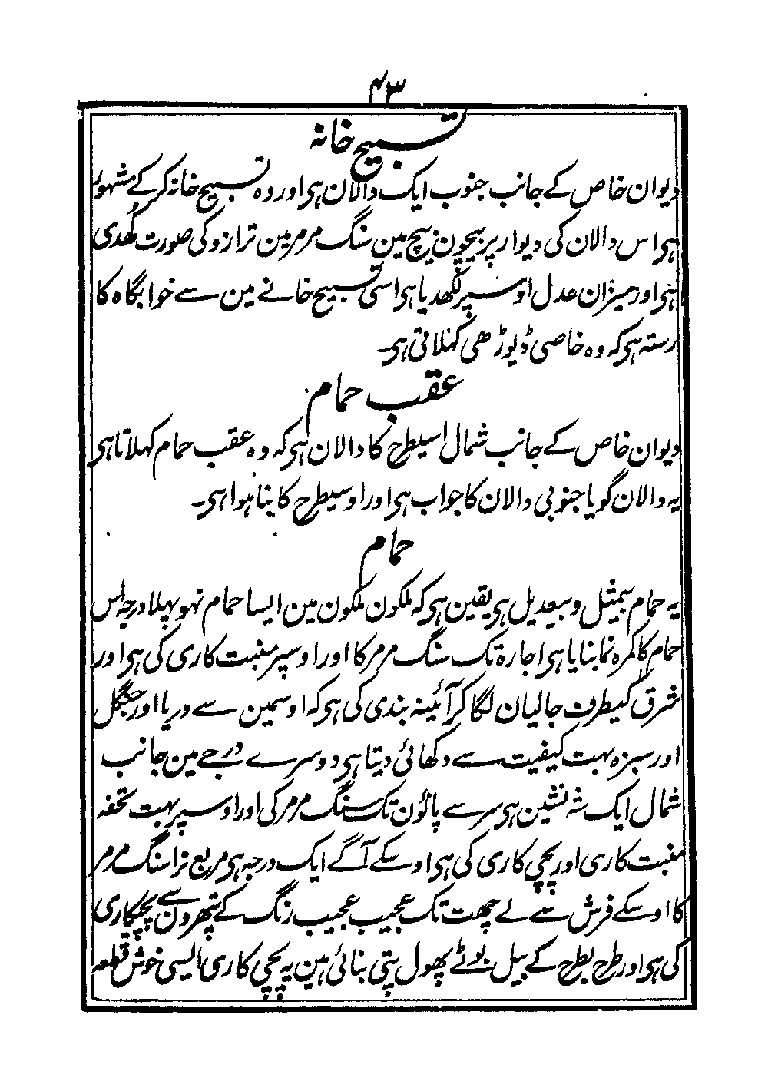 ۴۳
تسبیح خانہ
دیوان خاص کے جانب جنوب ایک دالان ہی اور وہ تسبیح خانہ کر کے مشہور
ہی اس دالان کی دیوار پر بیچون بیچ مین سنگ مرمر مین ترازو کی صورت کھدی
ہی اور میزان عدل اوسپر لکھدیا ہی اسی تسبیح خانے مین سے خوابگاہ کا
رستہ ہی کہ وہ خاصی ڈیوڑھی کہلاتی ہی۔
عقب حمام
دیوان خاص کے جانب شمال اسیطرح کا دالان ہی کہ وہ عقب حمام کہلاتا ہی
یہ دالان گویا جنوبی دالان کا جواب ہی اور اوسیطرح کا بنا ہوا ہی۔
حمام
یہ حمام بیمثیل و بیعدیل ہی یقین ہی کہ ملکون ملکون مین ایسا حمام نہو پہلا درجہ اس
حمام کا کمرہ نما بنایا ہی اجارہ تک سنگ مرمر کا اور اوسپر منبت کاری کی ہی اور
شرق کیطرف جالیان لگا کر آئینہ بندی کی ہی کہ اوسمین سے دریا اور جنگل
اور سبزہ بہت کیفیت سے دکھائی دیتا ہی دوسرے درجے مین جانب
شمال ایک شہ نشین ہی سر سے پانون تک سنگ مرمر کی اور اوسپر بہت تحفہ
منبت کاری اور پچی کاری کی ہی اوسکے آگے ایک درجہ ہی مربع نرا سنگ مرمر
کا اوسکے فرش سے لے چھت تک عجیب عجیب رنگ کے پتھرون سے پچیکاری
کی ہی اور طرح بطرح کے بیل بوٹے پھول پتی بنائی ہین یہ پچی کاری ایسی خوش قطع